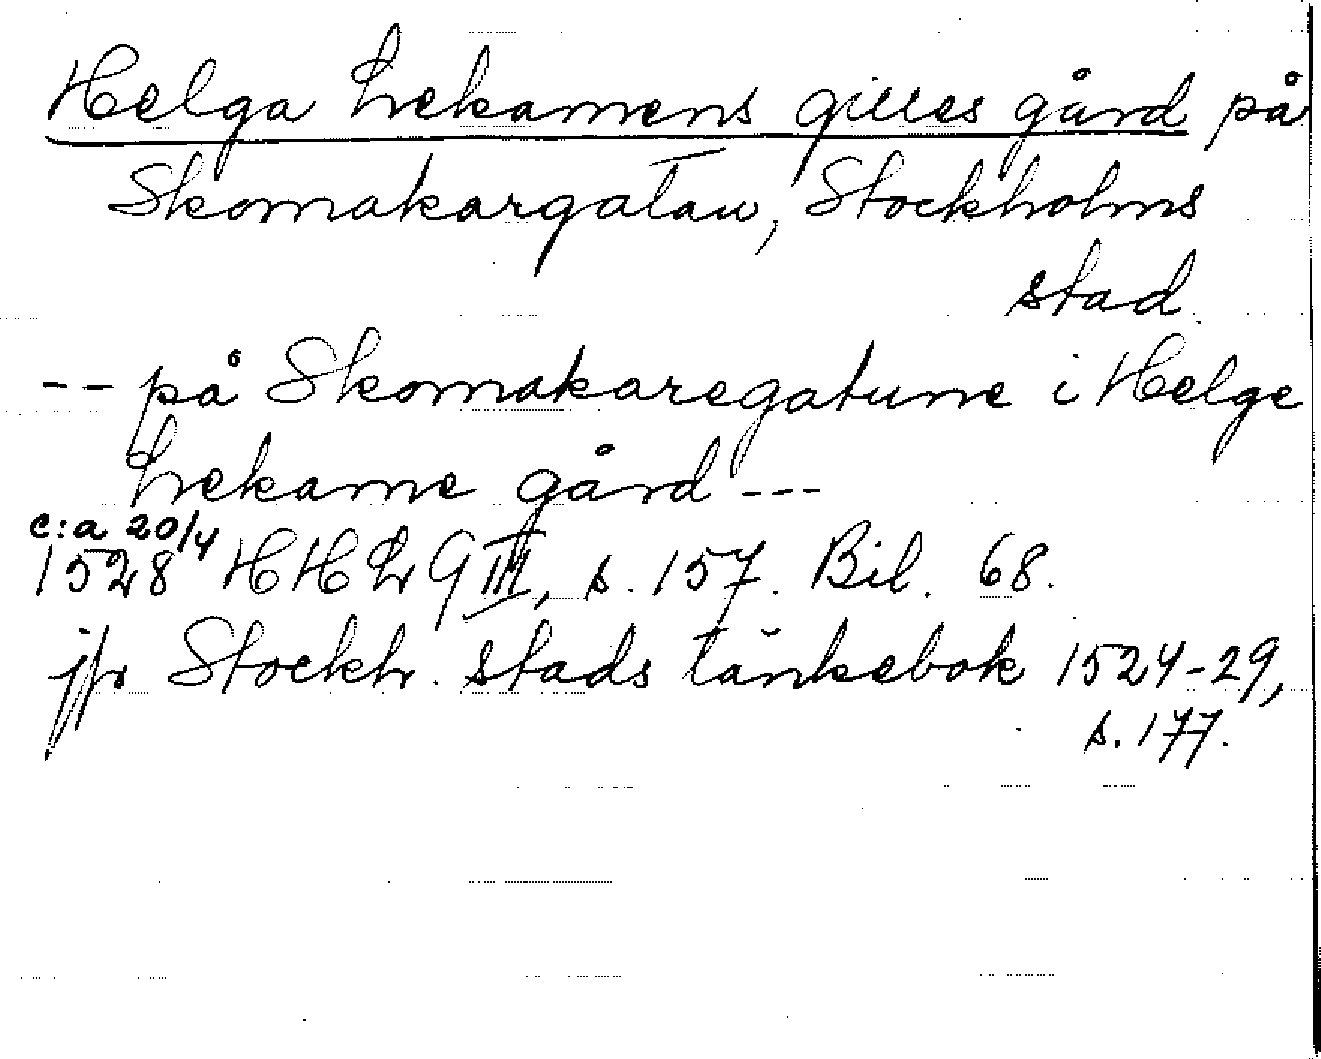 Helga Lekamens gilles gård på
Skomakargatan, Stockholms
stad.
-- på Skomakaregatune i Helge
Lekame gård ---
c:a 20/4
1528 HHLG III, s. 157. Bil. 68.
jfr Stockh. stads tänkebok 1524-29,
s. 177.